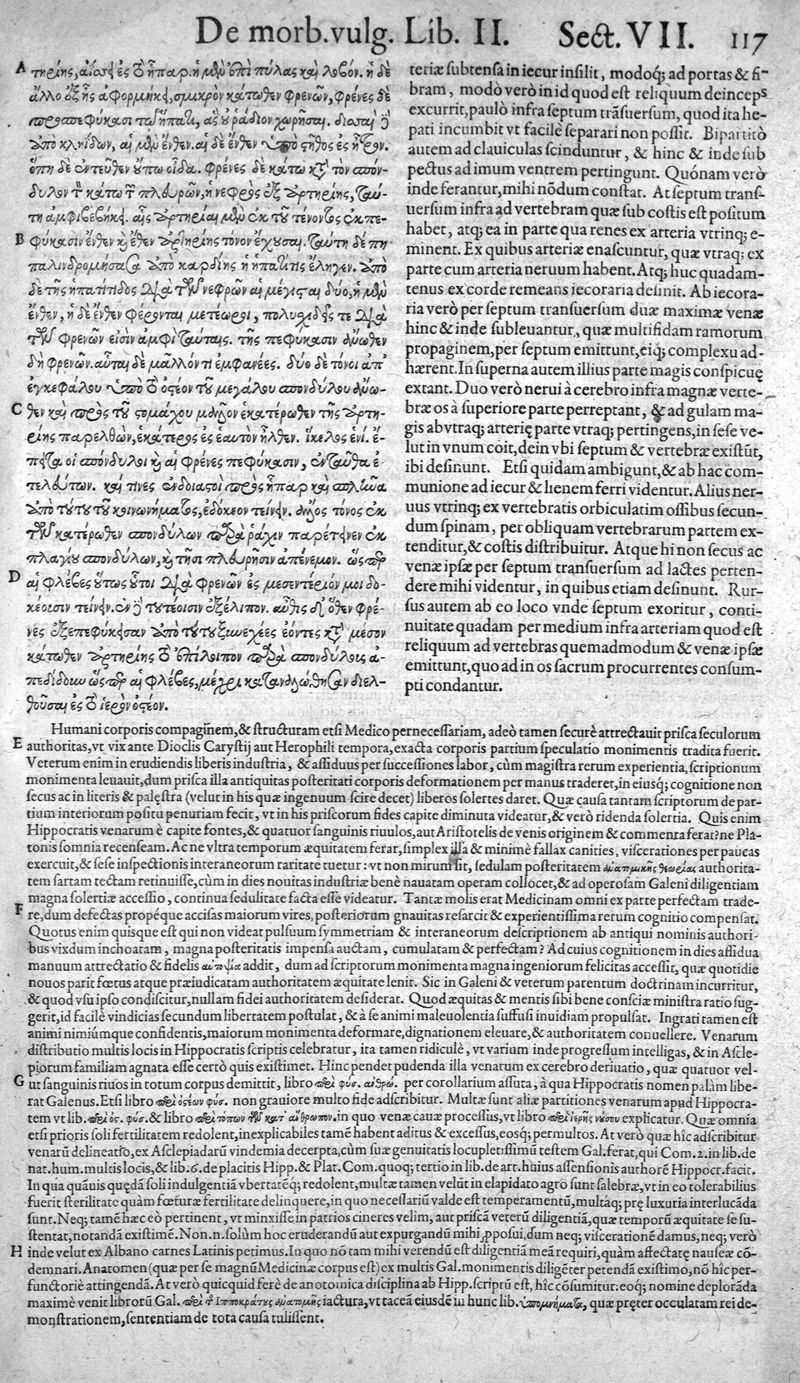 De morb. vulg. Lib. II. Sect. VII. 117
A τηρίης, ἀΐσσει ἐς τὸ ἧπαρ. ἡ μὲν ἐπὶ πύλας καὶ λοβόν. ἡ δὲ
ἄλλο ἑξῆς ἀφορμήκει, σμικρὸν κάτωθεν φρενῶν, φρένες δὲ
προσπεφύκασι τῷ ἥπατι, ἃς οὐ ῥᾴδιον χωρῆσαι. δισσαὶ δ'
ἀπὸ κληΐδων, αἱ μὲν ἔνθεν. αἱ δὲ ἔνθεν ὑπὸ στῆθος ἐς ἦτρον.
ὅπη δὲ ἐντεῦθεν οὔπω οἶδα. φρένες δὲ κάτω κατὰ τὸν σπόν-
δυλον τὸν κάτω τῶν πλευρῶν, ᾗ νεφρὸς ἐξ ἀρτηρίης, ταύ-
τῃ ἀμφιβεβήκει. αἷς ἀρτηρίαι μὲν ἐκ τοῦ τένοντος ἐκπε-
B φύκασιν ἔνθεν καὶ ἔνθεν ἀρτηρίης τόνον ἔχουσαι. ταύτῃ δέ πη
παλινδρομήσασα ἀπὸ καρδίης ἡ ἡπατῖτις ἔληγεν. ἀπὸ
δὲ τῆς ἡπατίτιδος διὰ τῶν νεφρῶν αἱ μέγισται δύο, ἡ μὲν
ἔνθεν, ἡ δὲ ἔνθεν φέρονται μετέωροι, πολυσχιδεῖς τε διὰ
τῶν φρενῶν εἰσιν ἀμφὶ ταύτας. τῆς πεφύκασιν ἄνωθεν
δὴ φρενῶν. αὗται δὲ μᾶλλόν τι ἐμφανέες. δύο δὲ τόνοι ἀπ'
ἐγκεφάλου ὑπὸ τὸ ὀστέον τοῦ μεγάλου σπονδύλου ἄνω-
C θεν καὶ πρὸς τοῦ στομάχου μᾶλλον ἑκατέρωθεν τῆς ἀρτη-
ρίης παρελθὼν, ἑκάτερος ἐς ἑαυτὸν ἦλθεν. ἴκελος ἑνί. ἔ-
πειτα οἱ σπόνδυλοι καὶ αἱ φρένες πεφύκασιν, ἐνταῦθα ἐ-
τελεύτων. καί τινες ἐνδοιαστοὶ πρὸς ἧπαρ καὶ σπλῆνα
ἀπὸ τούτου τοῦ κοινωνήματος, ἐδόκεον τείνειν. ἄλλος τόνος ἐκ
τῶν κατέρωθεν σπονδύλων παρὰ ῥάχιν παρέτεινεν ἐκ
πλαγίου σπονδύλων, καὶ τῇσι πλευρῇσιν ἀπένεμον. ὥσπερ
D αἱ φλέβες οὕτως οὗτοι διὰ φρενῶν ἐς μεσεντέριόν μοι δο-
κέουσιν τείνειν. ἐν δὲ τουτέοισιν ἐξέλιπον. αὖθις δὲ ὅθεν φρέ-
νες ἐξεπεφύκησαν ἀπὸ τούτου ξυνεχέες ἐόντες κατὰ μέσον
κάτωθεν ἀρτηρίης τὸ ἐπίλοιπον παρὰ σπονδύλους ἀ-
πεδίδουν ὥσπερ αἱ φλέβες, μέχρι κατανάλωθησαν διελ-
θοῦσαι ἐς τὸ ἱερὸν ὀστέον.
teriæ subtensa in iecur insilit, modoq; ad portas & fi-
bram, modò verò in id quod est reliquum deinceps
excurrit, paulò infra septum trãsuersum, quod ita he-
pati incumbit vt facile separari non possit. Bipartitò
autem ad clauiculas scinduntur, & hinc & inde sub
pectus ad imum ventrem pertingunt. Quónam verò
inde ferantur, mihi nõdum constat. At septum trans-
uersum infra ad vertebram quæ sub costis est positum
habet, atq; ea in parte qua renes ex arteria vtrinq; e-
minent. Ex quibus arteriæ enascuntur, quæ vtraq; ex
parte cum arteria neruum habent. Atq; huc quadam-
tenus ex corde remeans iecoraria desinit. Ab iecora-
ria verò per septum transuersum duæ maximæ venæ
hinc & inde subleuantur, quæ multifidam ramorum
propaginem, per septum emittunt, eiq; complexu ad-
hærent. In superna autem illius parte magis conspicuę
extant. Duo verò nerui à cerebro infra magnæ verte-
bræ os à superiore parte perreptant, & ad gulam ma-
gis ab vtraq; arterię parte vtraq; pertingens, in sese ve-
lut in vnum coit, dein vbi septum & vertebræ existũt,
ibi desinunt. Etsi quidam ambigunt, & ab hac com-
munione ad iecur & lienem ferri videntur. Alius ner-
uus vtrinq; ex vertebratis orbiculatim ossibus secun-
dum spinam, per obliquam vertebrarum partem ex-
tenditur, & costis distribuitur. Atque hi non secus ac
venæ ipsæ per septum transuersum ad lactes perten-
dere mihi videntur, in quibus etiam desinunt. Rur-
sus autem ab eo loco vnde septum exoritur, conti-
nuitate quadam per medium infra arteriam quod est
reliquum ad vertebras quemadmodum & venæ ipsæ
emittunt, quo ad in os sacrum procurrentes consum-
pti condantur.
Humani corporis compaginem, & structuram etsi Medico pernecessariam, adeò tamen securè attrectauit prisca seculorum
E authoritas, vt vix ante Dioclis Carystij aut Herophili tempora, exacta corporis partium speculatio monimentis tradita fuerit.
Veterum enim in erudiendis liberis industria, & assiduus per successiones labor, cùm magistra rerum experientia, scriptionum
monimenta leuauit, dum prisca illa antiquitas posteritati corporis deformationem per manus traderet, in eiusq; cognitione non
secus ac in literis & palęstra (velut in his quæ ingenuum scire decet) liberos solertes daret. Quæ causa tantam scriptorum de par-
tium interiorum positu penuriam fecit, vt in his priscorum fides capite diminuta videatur, & verò ridenda solertia. Quis enim
Hippocratis venarum è capite fontes, & quatuor sanguinis riuulos, aut Aristotelis de venis originem & commenta ferat? ne Pla-
tonis somnia recenseam. Ac ne vltra temporum æquitatem ferar, simplex illa & minimè fallax canities, viscerationes per paucas
exercuit, & sese inspectionis interaneorum raritate tuetur: vt non mirum sit, sedulam posteritatem ἀνατομικῆς θεωρίας authorita-
tem sartam tectam retinuisse, cùm in dies nouitas industriæ benè nauatam operam collocet, & ad operosam Galeni diligentiam
magna solertiæ accessio, continua sedulitate facta esse videatur. Tantæ molis erat Medicinam omni ex parte perfectam trade-
F re, dum defectas propéque accisas maiorum vires, posteriorum gnauitas resarcit & experientissima rerum cognitio compensat.
Quotus enim quisque est qui non videat pulsuum symmetriam & interaneorum descriptionem ab antiqui nominis authori-
bus vixdum inchoatam, magna posteritatis impensa auctam, cumulatam & perfectam? Ad cuius cognitionem in dies assidua
manuum attrectatio & fidelis αὐτοψία addit, dum ad scriptorum monimenta magna ingeniorum felicitas accessit, quæ quotidie
nouos parit fœtus atque præiudicatam authoritatem æquitate lenit. Sic in Galeni & veterum parentum doctrinam incurritur,
& quod vsu ipso condiscitur, nullam fidei authoritatem desiderat. Quod æquitas & mentis sibi bene consciæ ministra ratio sug-
gerit, id facilè vindicias secundum libertatem postulat, & à se animi maleuolentia suffusi inuidiam propulsat. Ingrati tamen est
animi nimiúmque confidentis, maiorum monimenta deformare, dignationem eleuare, & authoritatem conuellere. Venarum
distributio multis locis in Hippocratis scriptis celebratur, ita tamen ridiculè, vt varium inde progressum intelligas, & in Ascle-
piorum familiam agnata esse certò quis existimet. Hinc pendet pudenda illa venarum ex cerebro deriuatio, quæ quatuor vel-
G ut sanguinis riuos in totum corpus demittit, libro περὶ φύσ. ἀνθρώ. per corollarium assuta, à qua Hippocratis nomen palàm libe-
rat Galenus. Etsi libro περὶ ὀστέων φύσ. non grauiore multo fide adscribitur. Multæ sunt aliæ partitiones venarum apud Hippocra-
tem vt lib. περὶ ὀσ. φύσ. & libro περὶ τόπων τῶν κατ' ἄνθρωπον. in quo venæ cauæ processus, vt libro περὶ ἱερῆς νόσου explicatur. Quæ omnia
etsi prioris soli fertilitatem redolent, inexplicabiles tamẽ habent aditus & excessus, eosq; permultos. At verò quæ hîc adscribitur
venarũ delineatio, ex Asclepiadarũ vindemia decerpta, cùm suæ genuitatis locupletissimũ testem Gal. ferat, qui Com. 2. in lib. de
nat. hum. multis locis, & lib. 6. de placitis Hipp. & Plat. Com. quoq; tertio in lib. de art. huius assensionis authorẽ Hippocr. facit.
In qua quãuis quędã soli indulgentiã vbertatẽq; redolent, multæ tamen velut in elapidato agro sunt salebræ, vt in eo tolerabilius
fuerit sterilitate quàm fœturæ fertilitate delinquere, in quo necessariũ valde est temperamentũ, multáq; prę luxuria interlucãda
sunt. Neq; tamẽ hæc eò pertinent, vt minxisse in patrios cineres velim, aut priscã veterũ diligentiã, quæ temporũ æquitate se su-
stentat, notandã existimẽ. Non. n. solùm hoc eruderandũ aut expurgandũ mihi ꝓposui, dum neq; viscerationẽ damus, neq; verò
H inde velut ex Albano carnes Latinis petimus. In quo nõ tam mihi verendũ est diligentiã meã requiri, quàm affectatę nauseæ cõ-
demnari. Anatomen (quæ per se magnũ Medicinæ corpus est) ex multis Gal. monimentis diligẽter petendã existimo, nõ hîc per-
functoriè attingendã. At verò quicquid ferè de anotomica disciplina ab Hipp. scriptũ est, hîc cõsumitur: eoq; nomine deplorãda
maximè venit librorũ Gal. περὶ τῆς Ἱπποκράτους ἀνατομῆς iactura, vt taceã eiusdẽ in hunc lib. ὑπομνήματα, quæ pręter occulatam rei de-
monstrationem, sententiam de tota causa tulissent.